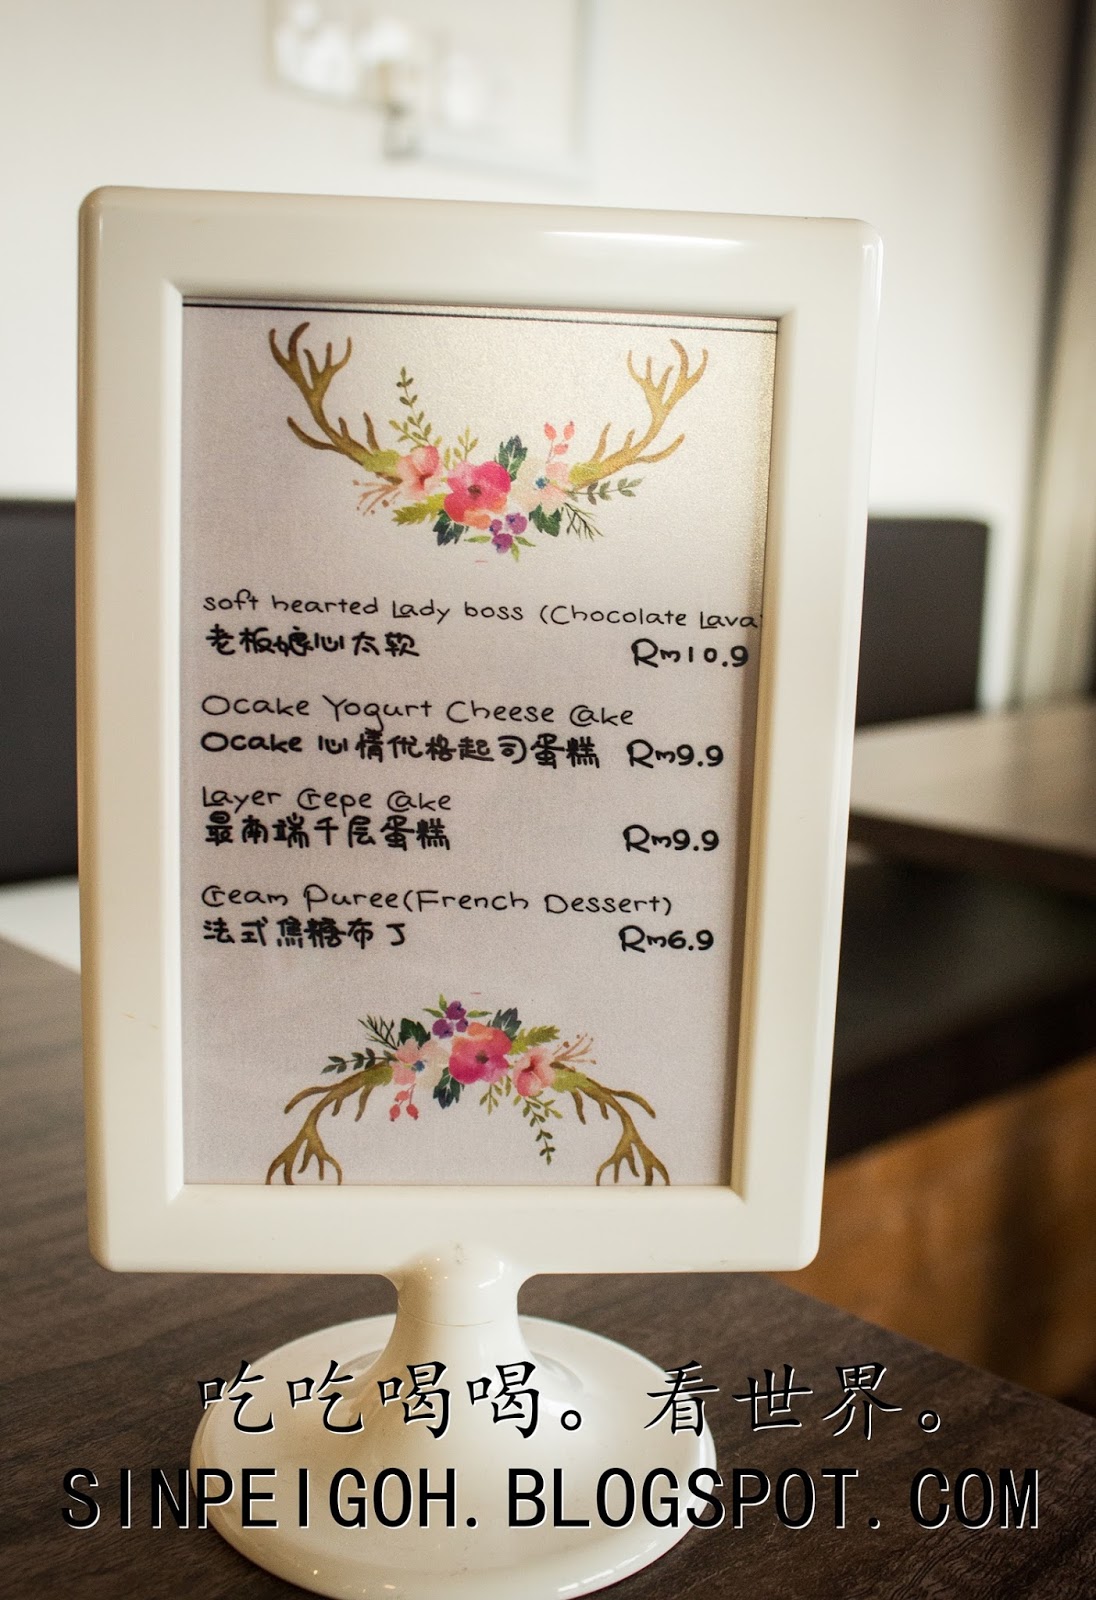 soft hearted Lady boss (Chocolate Lava
老板娘心太软 Rm10.9
Ocake Yogurt Cheese Cake
Ocake 心情优格起司蛋糕 Rm9.9
Layer Crepe Cake
最南端千层蛋糕 Rm9.9
Cream Puree(French Dessert)
法式焦糖布丁 Rm6.9
吃吃喝喝。看世界。
SINPEIGOH.BLOGSPOT.COM